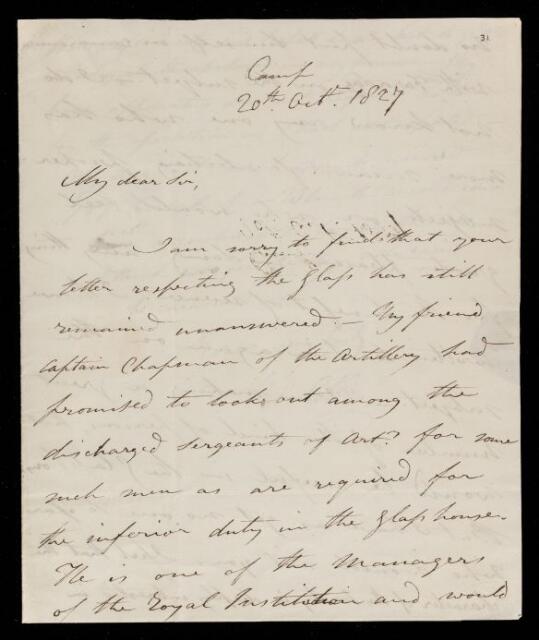 31
Camp
20th Octr. 1827
My dear Sir,
I am sorry to find that your
letter respecting the Glass has still
remained unanswered. — My friend
Captain Chapman of the Artillery had
promised to look out among the
discharged Sergeants of Arty. for some
such men as are required for
the inferior duty in the Glass house.
He is one of the Managers
of the Royal Institution and would